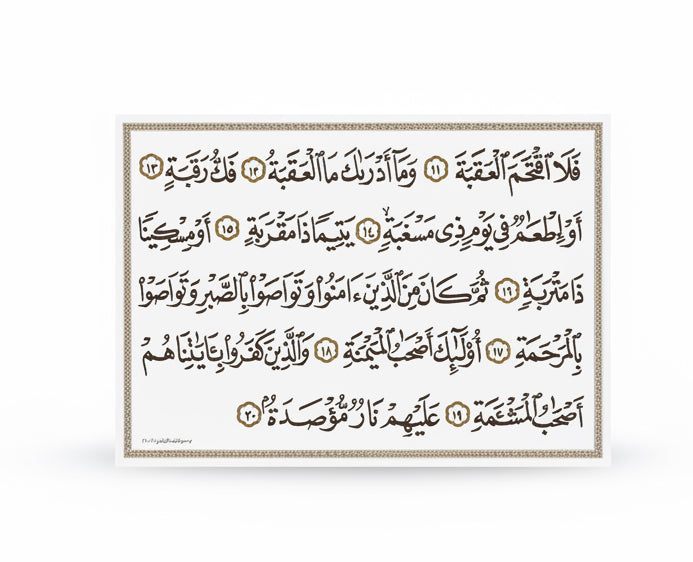 فَلَا ٱقۡتَحَمَ ٱلۡعَقَبَةَ ١١ وَمَآ أَدۡرَىٰكَ مَا ٱلۡعَقَبَةُ ١٢ فَكُّ رَقَبَةٍ ١٣
أَوۡ إِطۡعَٰمٞ فِي يَوۡمٖ ذِي مَسۡغَبَةٖ ١٤ يَتِيمٗا ذَا مَقۡرَبَةٍ ١٥ أَوۡ مِسۡكِينٗا
ذَا مَتۡرَبَةٖ ١٦ ثُمَّ كَانَ مِنَ ٱلَّذِينَ ءَامَنُواْ وَتَوَاصَوۡاْ بِٱلصَّبۡرِ وَتَوَاصَوۡاْ
بِٱلۡمَرۡحَمَةِ ١٧ أُوْلَٰٓئِكَ أَصۡحَٰبُ ٱلۡمَيۡمَنَةِ ١٨ وَٱلَّذِينَ كَفَرُواْ بِـَٔايَٰتِنَا هُمۡ
أَصۡحَٰبُ ٱلۡمَشۡـَٔمَةِ ١٩ عَلَيۡهِمۡ نَارٞ مُّؤۡصَدَةُۢ ٢٠